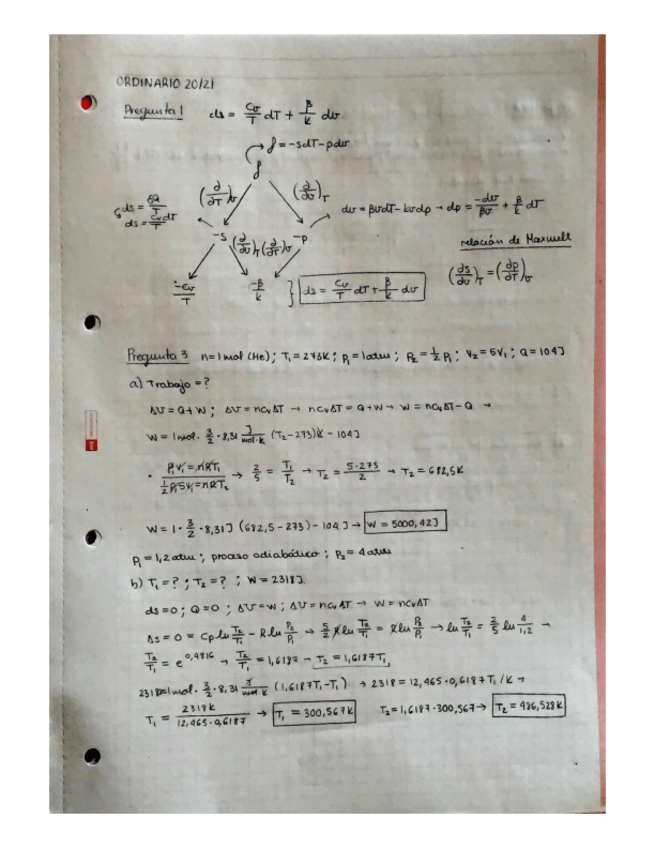 ORDINARIO 20/21
Pregunta 1 ds = Cv/T dT + β/k dv
f = -sdT - pdv
f
(∂/∂T)v (∂/∂v)T
ds = δQ/T
ds = Cv/T dT
dv = βvdT - kvdp → dp = -dv/βv + β/k dT
-s (∂/∂v)T (∂/∂T)v -p
relación de Maxwell
(∂s/∂v)T = (∂p/∂T)v
-Cv/T -β/k } ds = Cv/T dT + β/k dv
Pregunta 3 n=1mol (He); T1=273K; P1=1atm; P2=1/2 P1; V2=5V1; Q=104J
a) Trabajo = ?
ΔU = Q + W; ΔU = nCvΔT → nCvΔT = Q + W → W = nCvΔT - Q →
W = 1mol · 3/2 · 8,31 J/mol·K (T2-273)K - 104J
· P1V1=nRT1 / 1/2 P1 5V1=nRT2 → 2/5 = T1/T2 → T2 = 5·273/2 → T2 = 682,5K
W = 1 · 3/2 · 8,31J (682,5-273) - 104J → W = 5000,42J
P1 = 1,2atm; proceso adiabático; P2 = 4atm
b) T1 = ?; T2 = ?; W = 2318J.
ds=0; Q=0; ΔU=W; ΔU=nCvΔT → W=nCvΔT
Δs = 0 = Cp ln T2/T1 - R ln P2/P1 → 5/2 R ln T2/T1 = R ln P2/P1 → ln T2/T1 = 2/5 ln 4/1,2 →
T2/T1 = e^0,4816 → T2/T1 = 1,6187 → T2 = 1,6187T1,
2318=1mol · 3/2 · 8,31 J/mol·K (1,6187T1-T1) → 2318 = 12,465 · 0,6187T1 /K →
T1 = 2318K/12,465·0,6187 → T1 = 300,567K T2 = 1,6187·300,567 → T2 = 486,528K